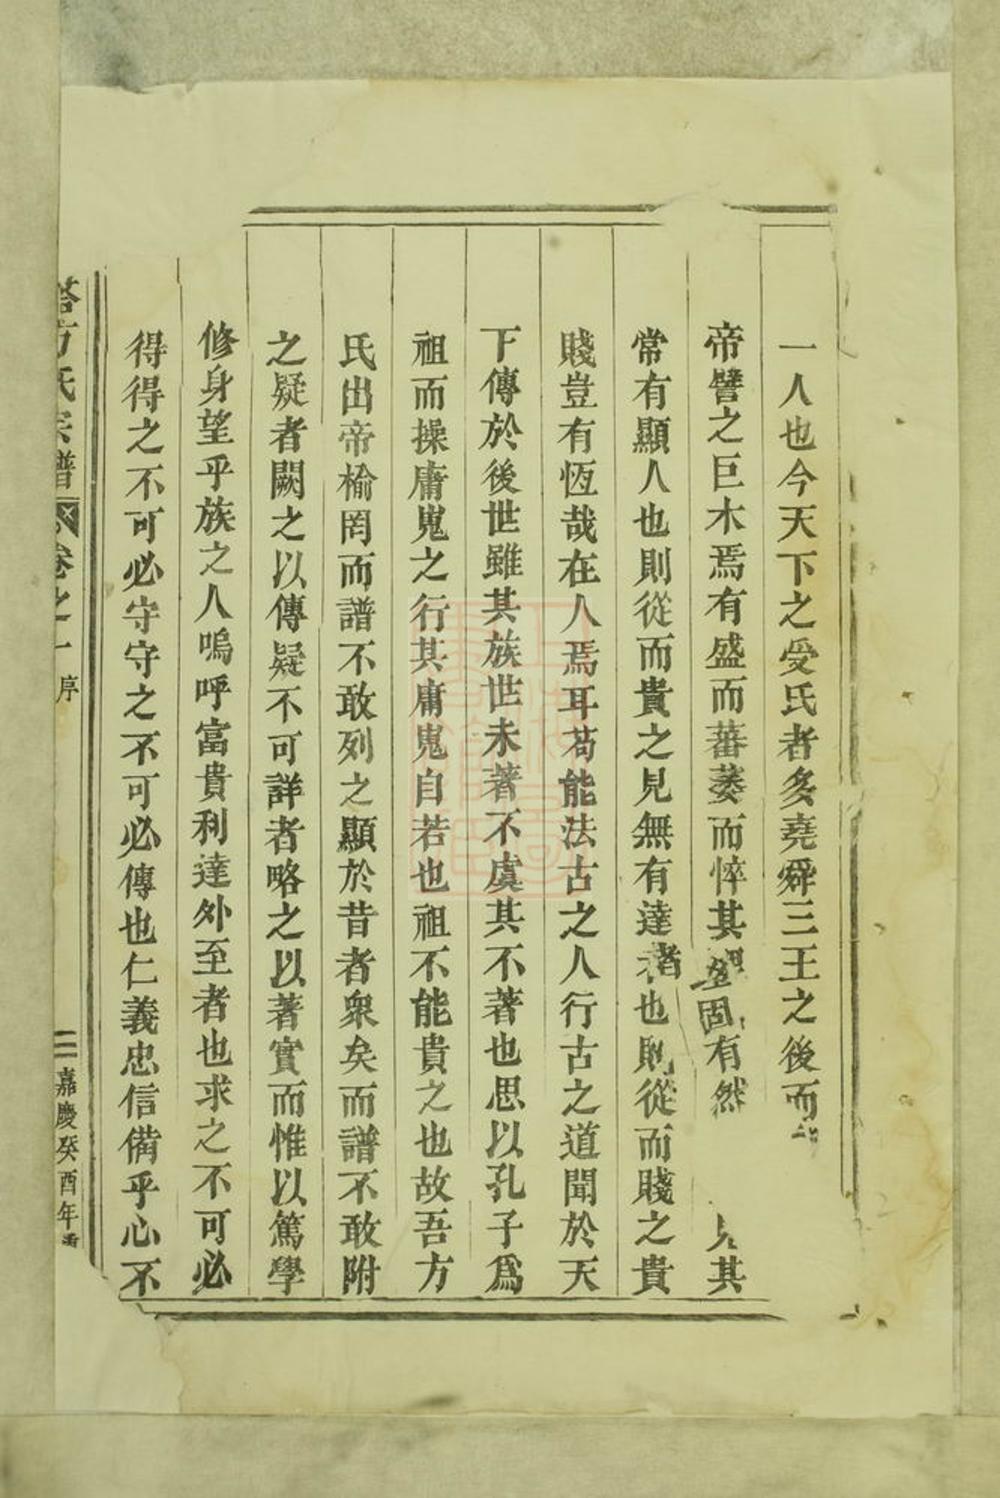 一人也今天下之受氏者多堯舜三王之後而
帝譬之巨木焉有盛而蕃萎而悴其固有然其
常有顯人也則從而貴之見無有達者也則從而賤之貴
賤豈有恆哉在人焉耳苟能法古之人行古之道聞於天
下傳於後世雖其族世未著不虞其不著也思以孔子爲
祖而操庸鬼之行其庸鬼自若也祖不能貴之也故吾方
氏出帝榆罔而譜不敢列之顯於昔者衆矣而譜不敢附
之疑者闕之以傳疑不可詳者略之以著實而惟以篤學
修身望乎族之人嗚呼富貴利達外至者也求之不可必
得得之不可必守守之不可必傳也仁義忠信備乎心不
方氏宗譜 卷之一 序 二 嘉慶癸酉年